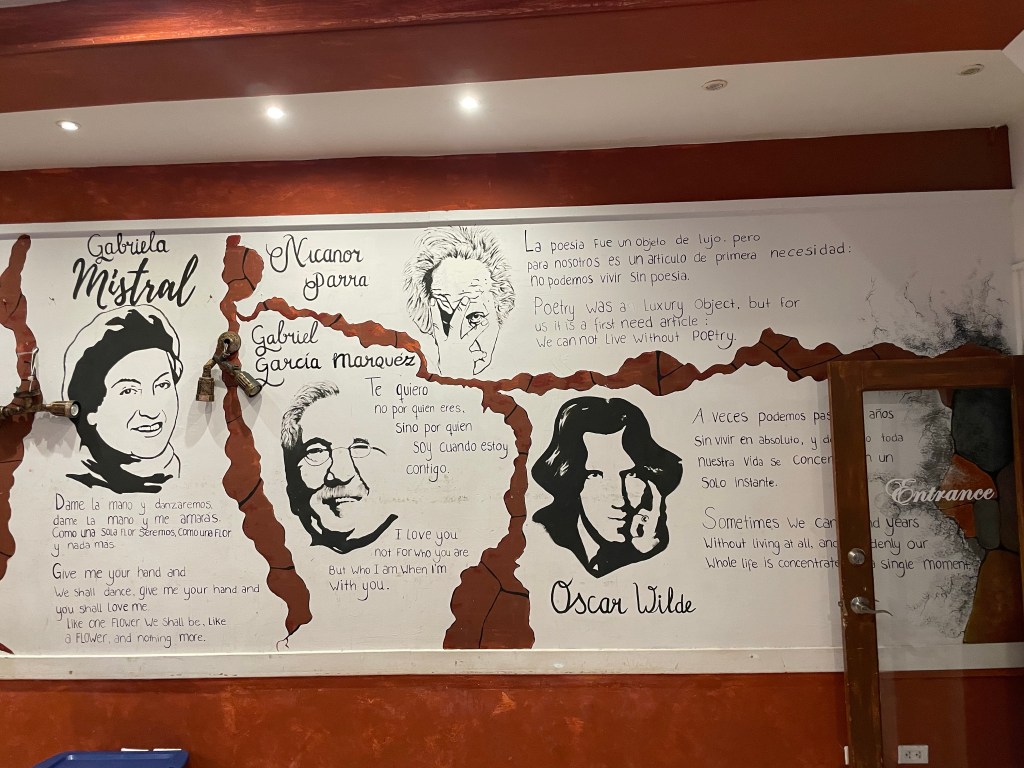 Gabriela
Mistral
Dame la mano y danzaremos,
dame la mano y me amaras.
Como una sola flor seremos, como una flor
y nada mas.
Give me your hand and
we shall dance, give me your hand and
you shall love me.
Like one flower we shall be, like
a flower, and nothing more.
Nicanor
Parra
La poesia fue un objeto de lujo. pero
para nosotros es un articulo de primera necesidad:
no podemos vivir sin poesia.
Poetry was a luxury object, but for
us it is a first need article:
we can not live without poetry.
Gabriel
García Marquéz
Te quiero
no por quien eres,
sino por quien
soy cuando estoy
contigo.
I love you
not for who you are
But who I am, when I'm
with you.
Oscar Wilde
A veces podemos años
sin vivir en absoluto, y toda
nuestra vida se un
solo instante.
Sometimes we can years
without living at all, and our
whole life is single moment.
Entrance